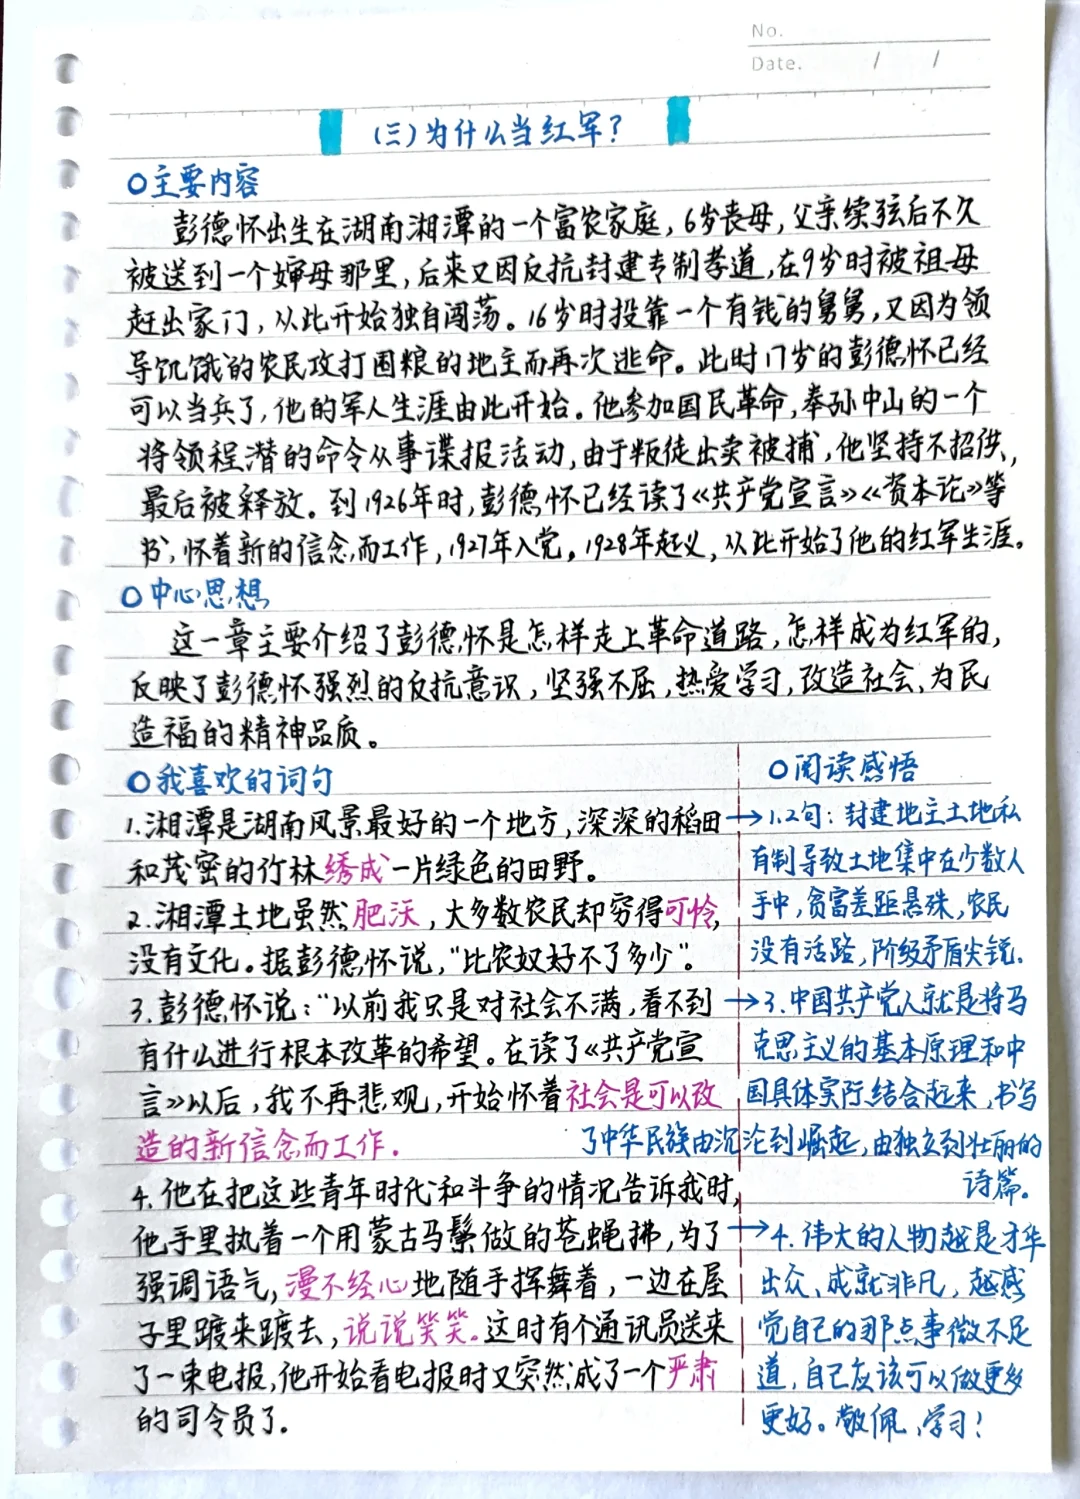 No.
Date. / /
(三)为什么当红军?
○主要内容
彭德怀出生在湖南湘潭的一个富农家庭,6岁丧母,父亲续弦后不久
被送到一个婶母那里,后来又因反抗封建专制孝道,在9岁时被祖母
赶出家门,从此开始独自闯荡。16岁时投靠一个有钱的舅舅,又因为领
导饥饿的农民攻打囤粮的地主而再次逃命。此时17岁的彭德怀已经
可以当兵了,他的军人生涯由此开始。他参加国民革命,奉孙中山的一个
将领程潜的命令从事谍报活动,由于叛徒出卖被捕,他坚持不招供,
最后被释放。到1926年时,彭德怀已经读了《共产党宣言》《资本论》等
书,怀着新的信念而工作,1927年入党。1928年起义,从此开始了他的红军生涯。
○中心思想
这一章主要介绍了彭德怀是怎样走上革命道路,怎样成为红军的,
反映了彭德怀强烈的反抗意识,坚强不屈,热爱学习,改造社会、为民
造福的精神品质。
○我喜欢的词句
1.湘潭是湖南风景最好的一个地方,深深的稻田
和茂密的竹林绣成一片绿色的田野。
2.湘潭土地虽然肥沃,大多数农民却穷得可怜,
没有文化。据彭德怀说,"比农奴好不了多少"。
3.彭德怀说:"以前我只是对社会不满,看不到
有什么进行根本改革的希望。在读了《共产党宣
言》以后,我不再悲观,开始怀着社会是可以改
造的新信念而工作.
4.他在把这些青年时代和斗争的情况告诉我时,
他手里执着一个用蒙古马鬃做的苍蝇拂,为了
强调语气,漫不经心地随手挥舞着,一边在屋
子里踱来踱去,说说笑笑。这时有个通讯员送来
了一束电报,他开始看电报时又突然成了一个严肃
的司令员了.
○阅读感悟
→1.2句:封建地主土地私
有制导致土地集中在少数人
手中,贫富差距悬殊,农民
没有活路,阶级矛盾尖锐.
→3.中国共产党人就是将马
克思主义的基本原理和中
国具体实际结合起来,书写
了中华民族由沉沦到崛起,由独立到壮丽的
诗篇。
→4.伟大的人物越是才华
出众、成就非凡,越感
觉自己的那点事微不足
道,自己应该可以做更多
更好。敬佩,学习!